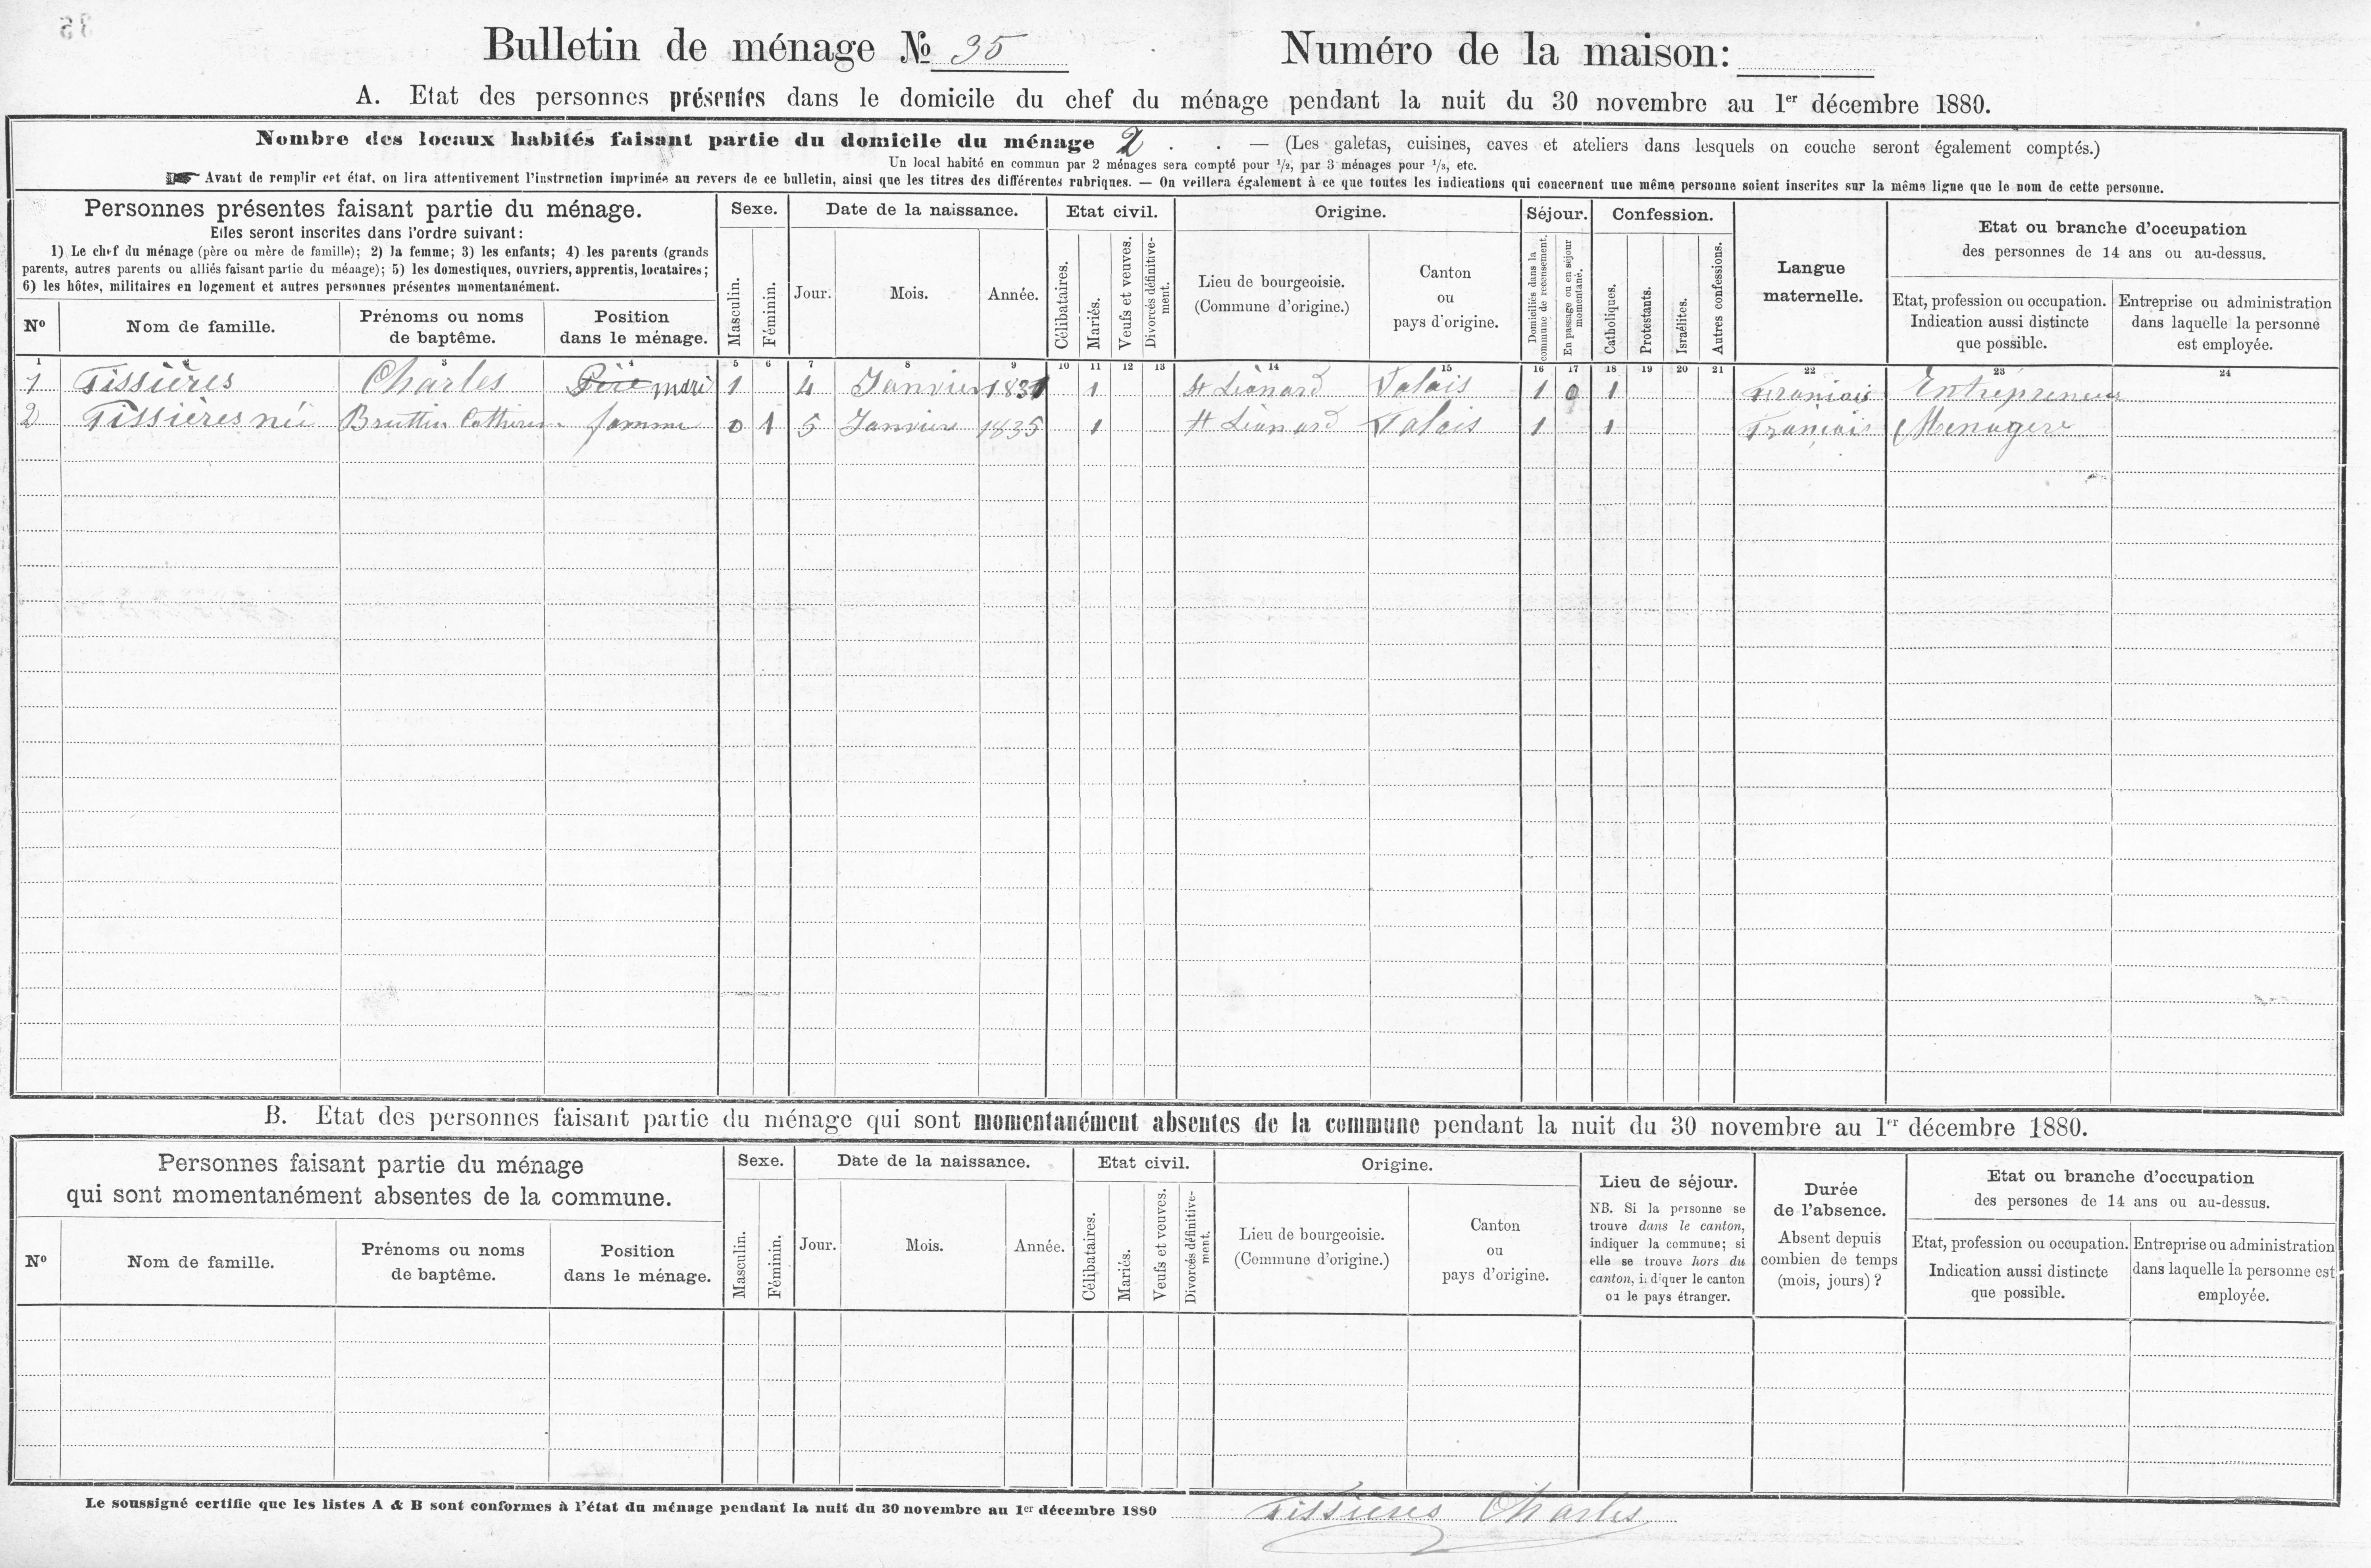 35
Bulletin de ménage № 35
Numéro de la maison:
A. Etat des personnes présentes dans le domicile du chef du ménage pendant la nuit du 30 novembre au 1er décembre 1880.
Nombre des locaux habités faisant partie du domicile du ménage 2 . . — (Les galetas, cuisines, caves et ateliers dans lesquels on couche seront également comptés.)
Un local habité en commun par 2 ménages sera compté pour 1/2, par 3 ménages pour 1/3, etc.
☛ Avant de remplir cet état, on lira attentivement l'instruction imprimée au revers de ce bulletin, ainsi que les titres des différentes rubriques. — On veillera également à ce que toutes les indications qui concernent une même personne soient inscrites sur la même ligne que le nom de cette personne.
Personnes présentes faisant partie du ménage.
Elles seront inscrites dans l'ordre suivant:
1) Le chef du ménage (père ou mère de famille); 2) la femme; 3) les enfants; 4) les parents (grands
parents, autres parents ou alliés faisant partie du ménage); 5) les domestiques, ouvriers, apprentis, locataires;
6) les hôtes, militaires en logement et autres personnes présentes momentanément.
Nº
Nom de famille.
Prénoms ou noms
de baptême.
Position
dans le ménage.
Sexe.
Masculin.
Féminin.
Date de la naissance.
Jour.
Mois.
Année.
Etat civil.
Célibataires.
Mariés.
Veufs et veuves.
Divorcés définitive-
ment.
Origine.
Lieu de bourgeoisie.
(Commune d'origine.)
Canton
ou
pays d'origine.
Séjour.
Domiciliés dans la
commune de recensement.
En passage ou en séjour
momentané.
Confession.
Catholiques.
Protestants.
Israélites.
Autres confessions.
Langue
maternelle.
Etat ou branche d'occupation
des personnes de 14 ans ou au-dessus.
Etat, profession ou occupation.
Indication aussi distincte
que possible.
Entreprise ou administration
dans laquelle la personne
est employée.
1 2 3 4 5 6 7 8 9 10 11 12 13 14 15 16 17 18 19 20 21 22 23 24
1 Tissières Charles Père mari 1 4 Janvier 1831 1 St Léonard Valais 1 0 1 Français Entrepreneur
2 Tissières née Bruttin Catherine femme 0 1 5 Janvier 1835 1 St Léonard Valais 1 1 Français Ménagère
B. Etat des personnes faisant partie du ménage qui sont momentanément absentes de la commune pendant la nuit du 30 novembre au 1er décembre 1880.
Personnes faisant partie du ménage
qui sont momentanément absentes de la commune.
Nº
Nom de famille.
Prénoms ou noms
de baptême.
Position
dans le ménage.
Sexe.
Masculin.
Féminin.
Date de la naissance.
Jour.
Mois.
Année.
Etat civil.
Célibataires.
Mariés.
Veufs et veuves.
Divorcés définitive-
ment.
Origine.
Lieu de bourgeoisie.
(Commune d'origine.)
Canton
ou
pays d'origine.
Lieu de séjour.
NB. Si la personne se
trouve dans le canton,
indiquer la commune; si
elle se trouve hors du
canton, indiquer le canton
ou le pays étranger.
Durée
de l'absence.
Absent depuis
combien de temps
(mois, jours)?
Etat ou branche d'occupation
des persones de 14 ans ou au-dessus.
Etat, profession ou occupation.
Indication aussi distincte
que possible.
Entreprise ou administration
dans laquelle la personne est
employée.
Le soussigné certifie que les listes A & B sont conformes à l'état du ménage pendant la nuit du 30 novembre au 1er décembre 1880
Tissières Charles